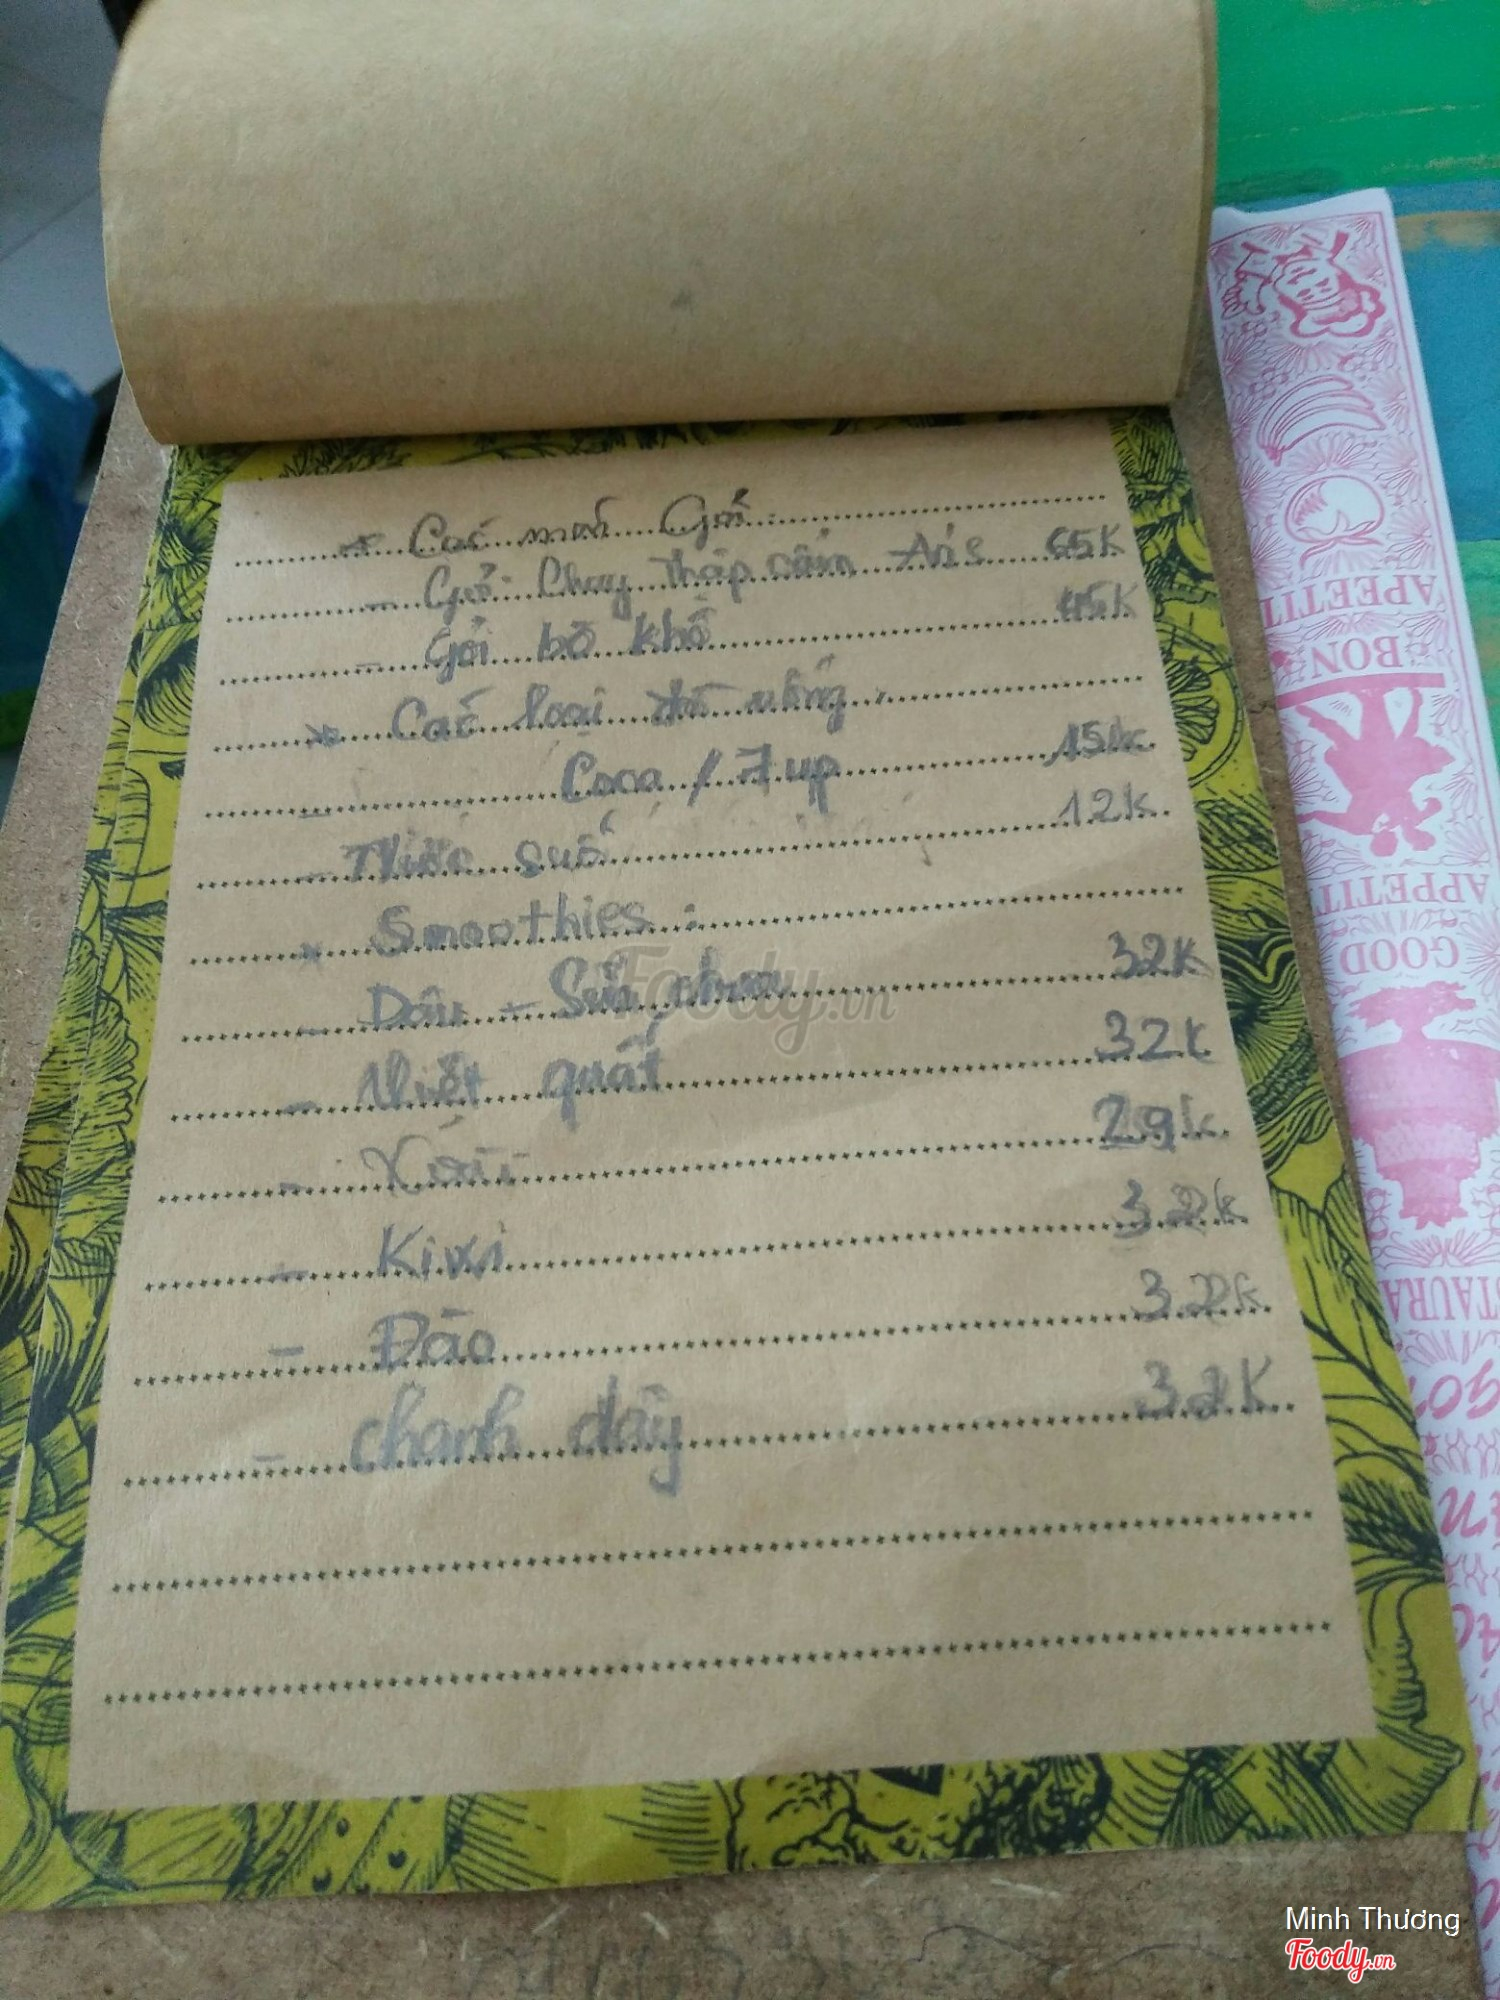 * Các món Gỏi:
- Gỏi Chay thập cẩm An's 65K
- Gỏi bò khô 45K
* Các loại đồ uống:
- Coca / 7 up 15k
- Nước suối 12k
* Smoothies:
- Dâu - Sữa chua 32K
- Việt quất 32k
- Xoài 29k
- Kiwi 32k
- Đào 32k
- chanh dây 32K
Foody.vn
BON
APETIT
GOOD
APPETIT
Minh Thương
Foody.vn